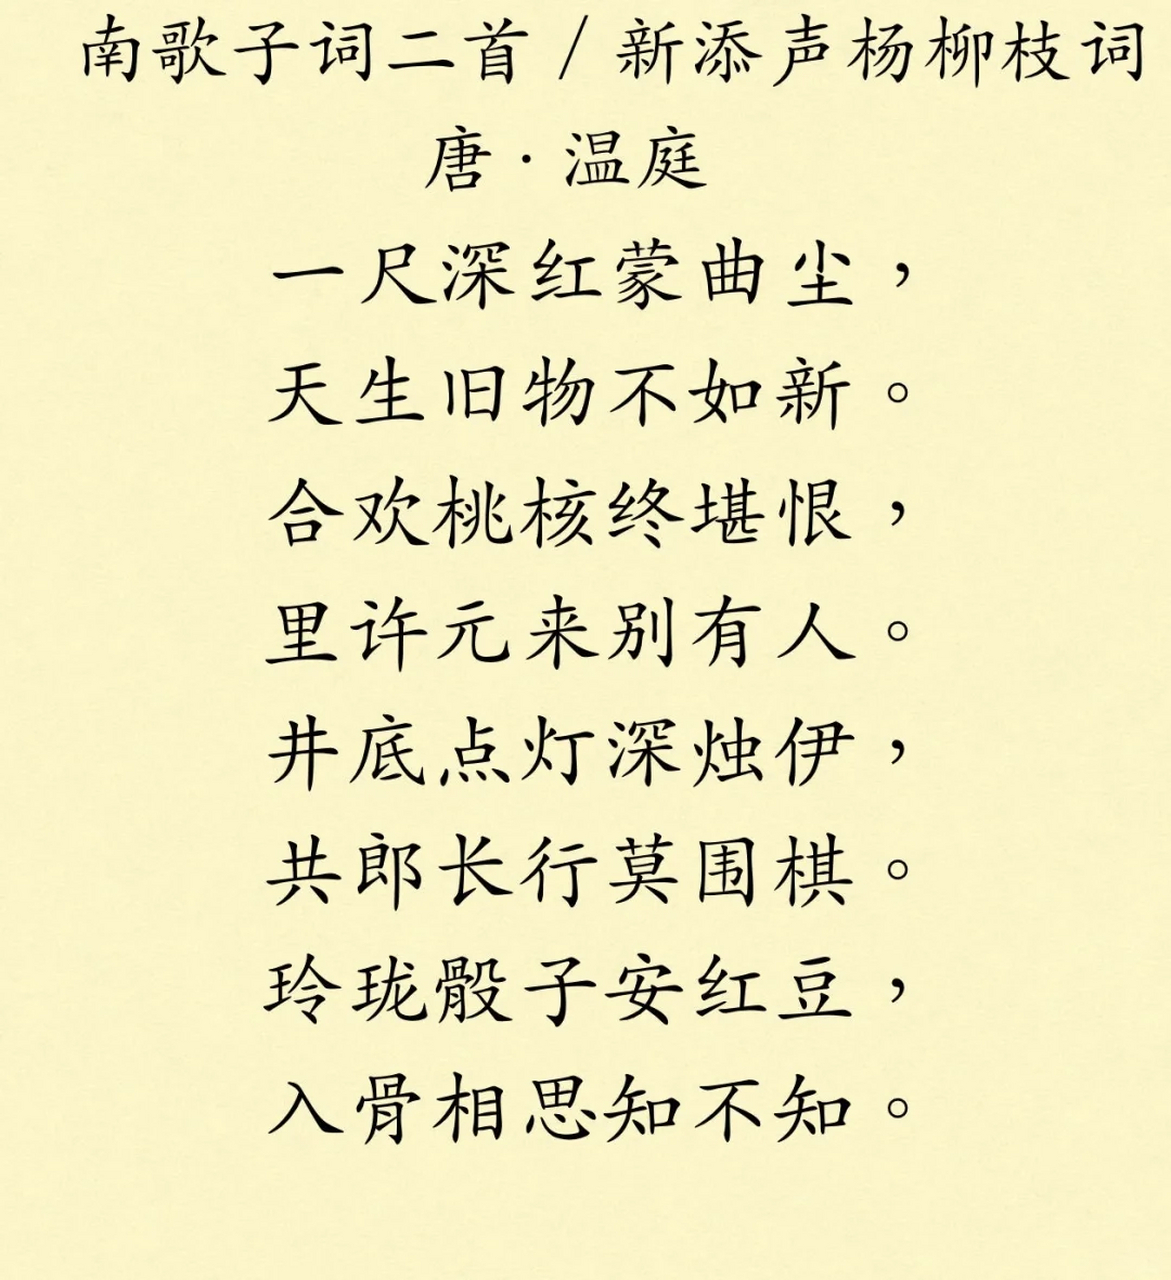 南歌子词二首 / 新添声杨柳枝词
唐·温庭
一尺深红蒙曲尘，
天生旧物不如新。
合欢桃核终堪恨，
里许元来别有人。
井底点灯深烛伊，
共郎长行莫围棋。
玲珑骰子安红豆，
入骨相思知不知。